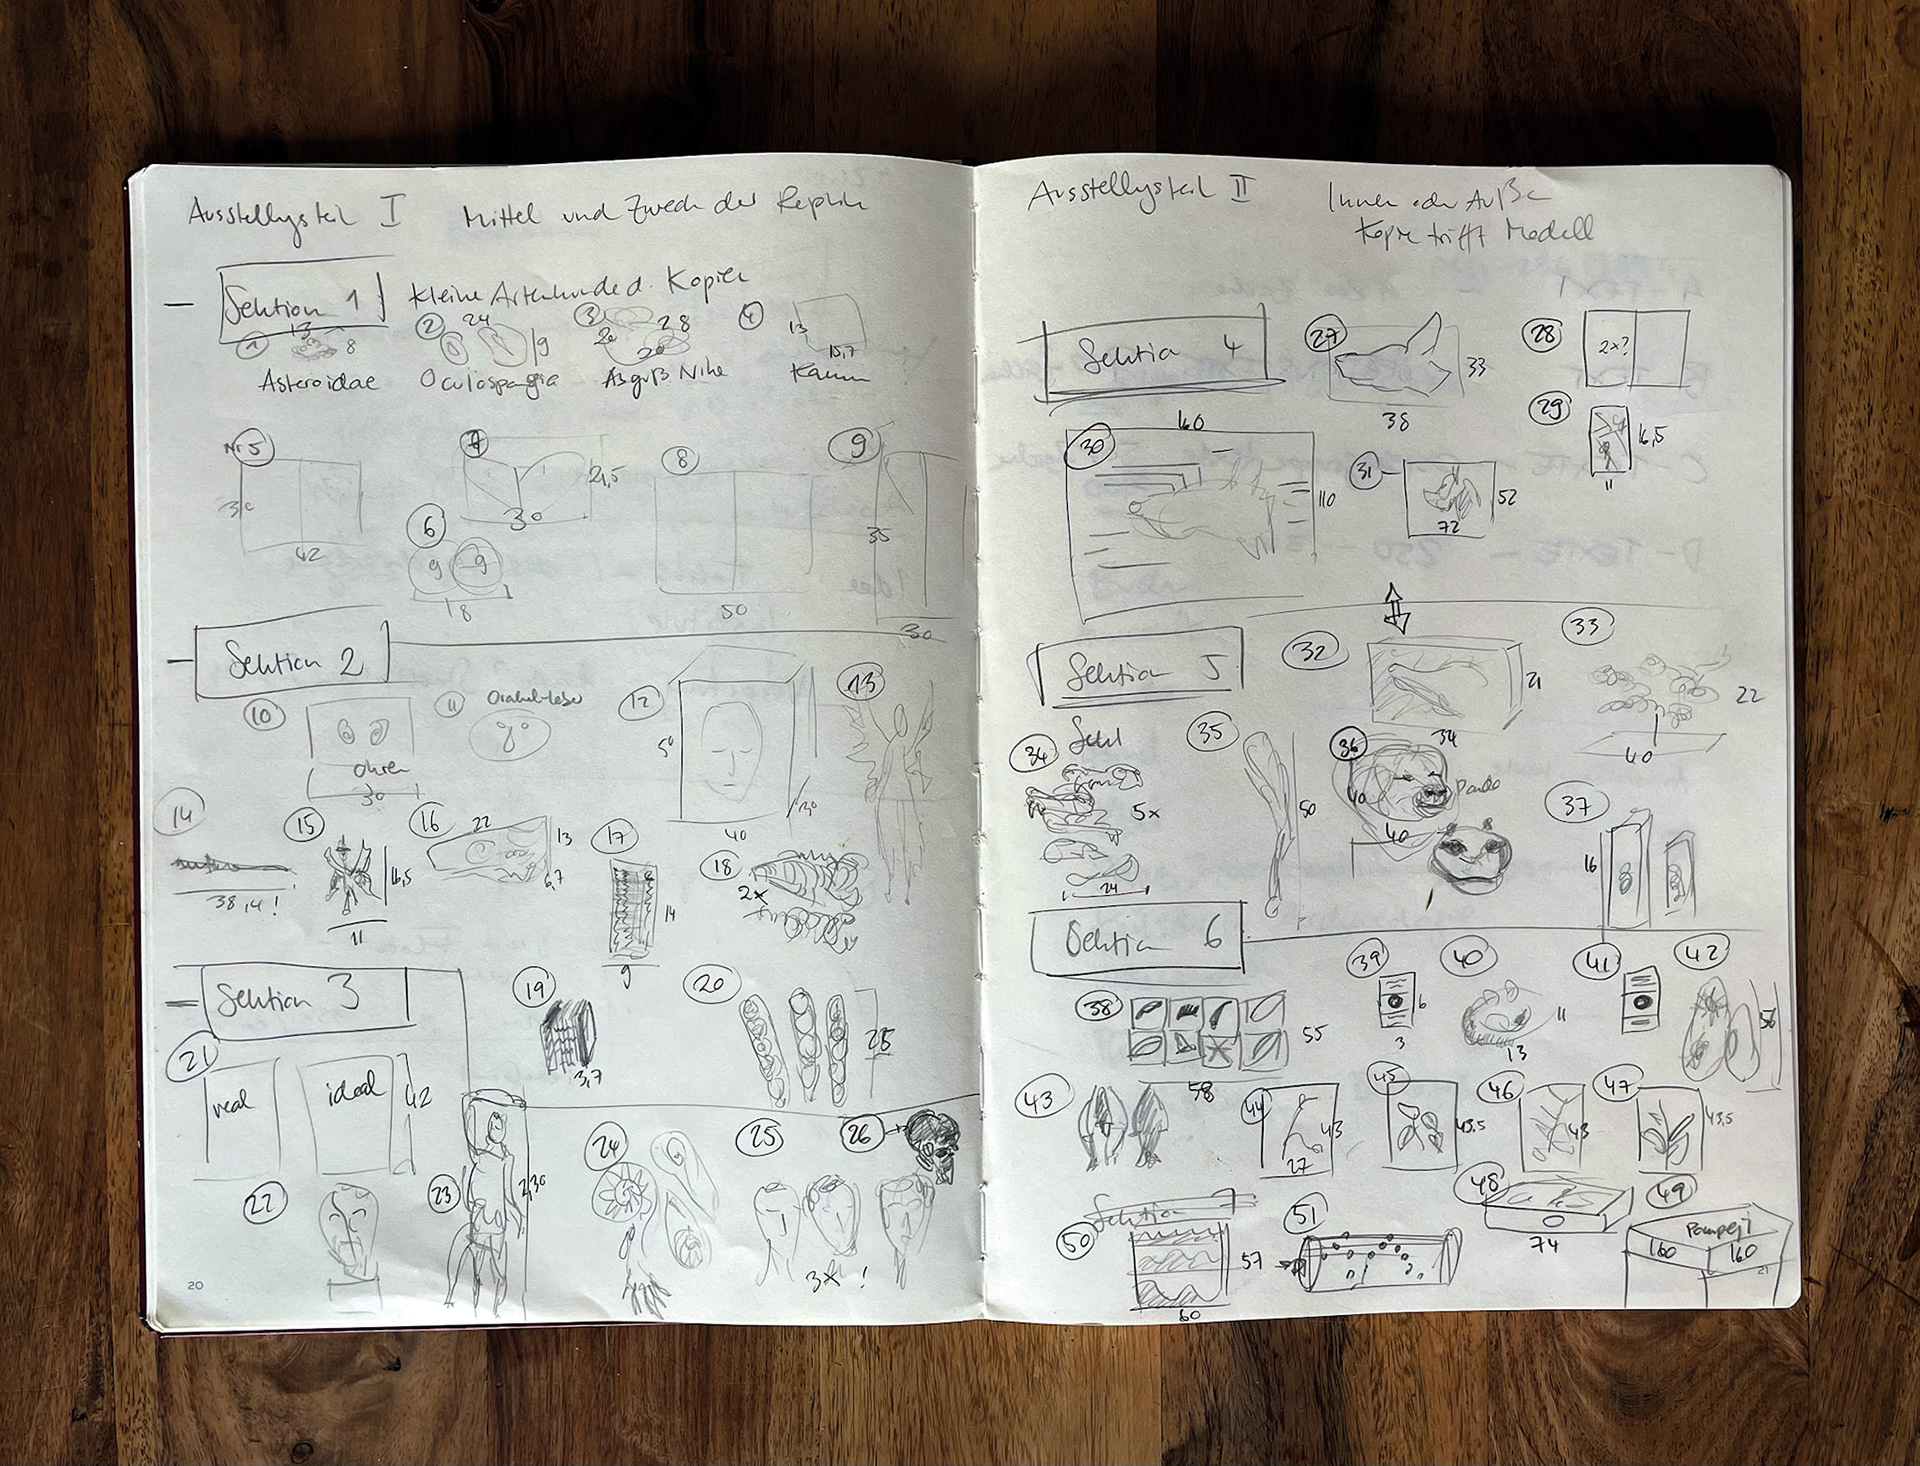 Ausstellungsteil I Mittel und Zweck der Replik
Sektion 1 Kleine Artenkunde d. Kopien
1 13 8
Asteroidae
2 24 9
Oculospongia
3 28 20 20
Abguß Nike
4 13 15,7
Kamm
Nr 5 30 42
7 21,5 30
6 9 9 18
8 50
9 35 30
Sektion 2
10 Ohren 30
11 Orakelleber
12 50 40 30
13
14 38,14!
15 16,5 11
16 22 13 6,7
17 14 9
18 2x
Sektion 3
19 3,7
20 28
21 real ideal 42
22
23 2,30
24
25 3x!
26
20
Ausstellungsteil II Innen oder Außen
Kopie trifft Modell
Sektion 4
27 33 38
28 2x?
29 16,5 11
30 160 110
31 52 72
Sektion 5
32 21 34
33 22 40
34 5x 24
35 50
36 40 40 Panda
37 16
Sektion 6
38 55 58
39 6 3
40 11 13
41
42 56
43
44 43 27
45 43,5
46 43
47 43,5
48 74
49 Pompeji 160 160
Sektion 7
50 57 60
51
21